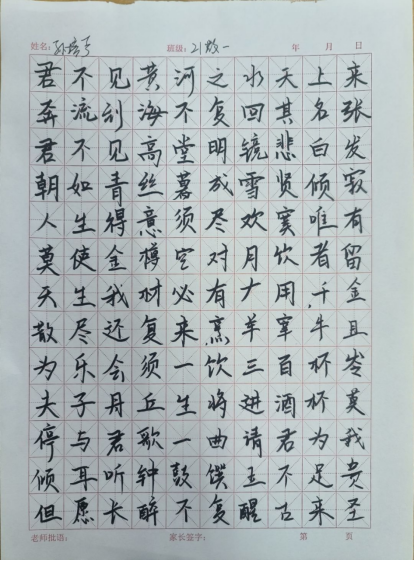 姓名: 班级: 21数一 年 月 日
君不见黄河之水天上来
奔流到海不复回其名张
君不见高堂明镜悲白发
朝如青丝暮成雪贤倾寂
人生得意须尽欢寞唯有
莫使金樽空对月饮者留
天生我材必有大用,千金
散尽还复来烹羊宰牛且
为乐会须一饮三百杯岑
夫子丹丘生将进酒杯莫
停与君歌一曲请君为我
倾耳听钟鼓馔玉不足贵
但愿长醉不复醒古来圣
老师批语: 家长签字: 第 页